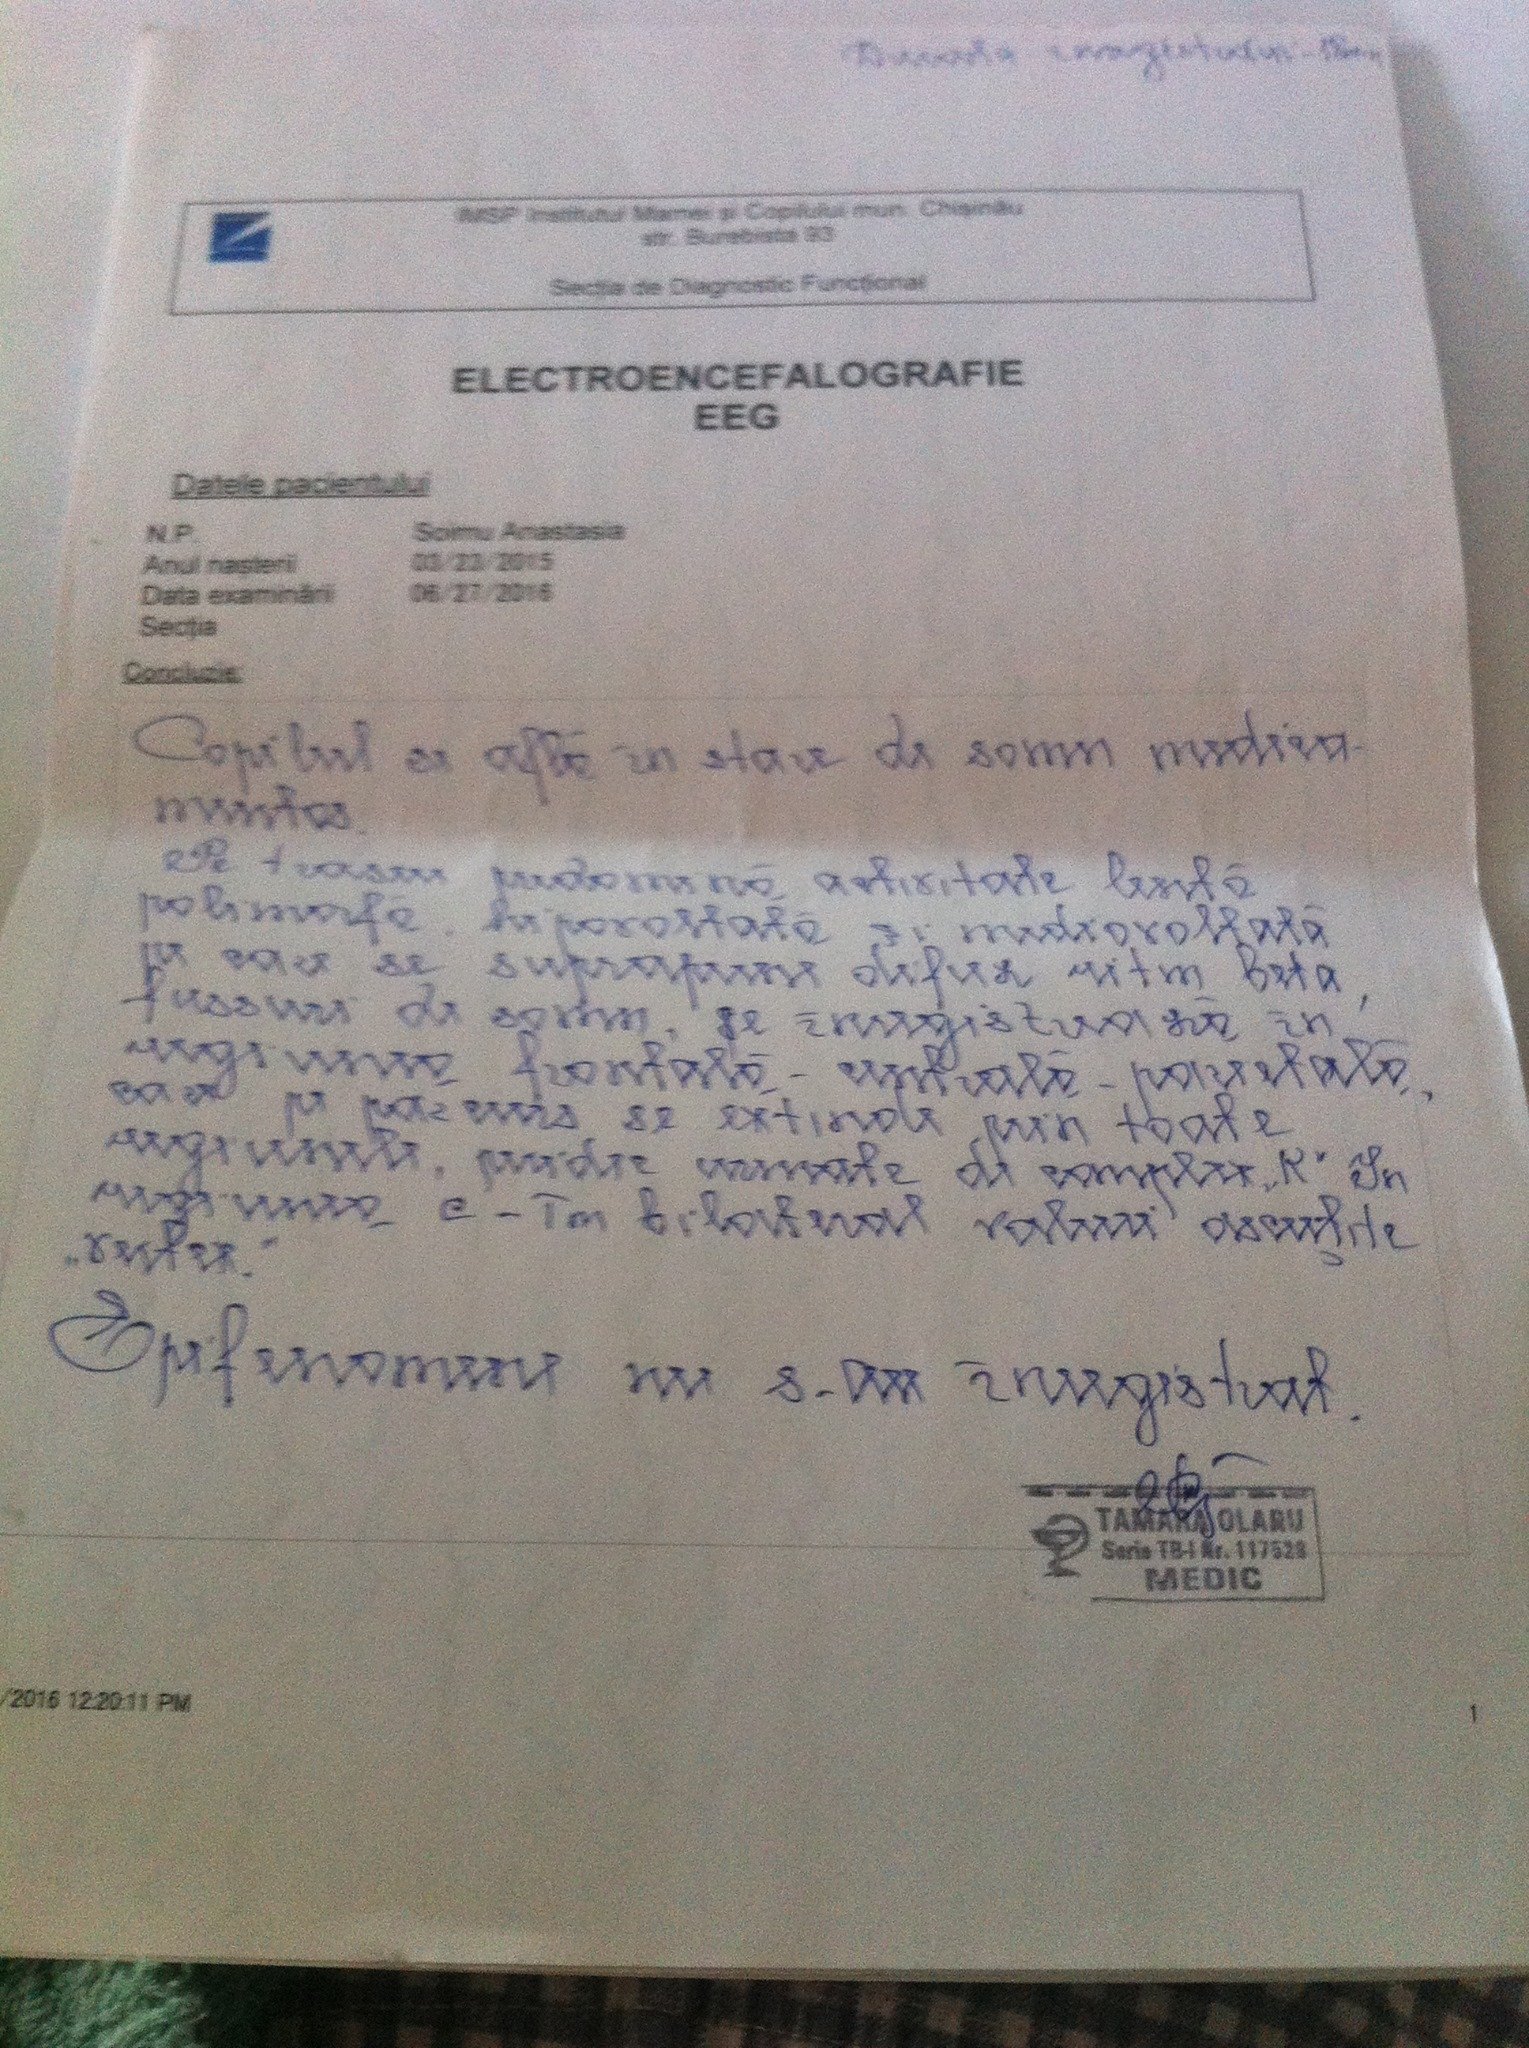 Durata înregistrării -
IMSP Institutul Mamei și Copilului mun. Chișinău
str. Burebista 93
Secția de Diagnostic Funcțional
ELECTROENCEFALOGRAFIE
EEG
Datele pacientului
N.P. Soimu Anastasia
Anul nașterii 03/23/2015
Data examinării 06/27/2016
Secția
Concluzie:
Copilul se află în stare de somn medica-
mentos.
Pe traseu predomină activitate lentă
polimorfă, hipovoltată și mediovoltată
pe care se suprapune difuz ritm beta,
fusuri de somn, se înregistrează în
regiunea frontală - centrală - parietală,
care pe parcurs se extinde prin toate
regiunile, precedate de complex „K" În
regiunea c - Tm bilateral valuri ascuțite
„vertex."
Epifenomene nu s-au înregistrat.
TAMARA OLARU
Serie TB-I Nr. 117528
MEDIC
/2016 12:20:11 PM
1